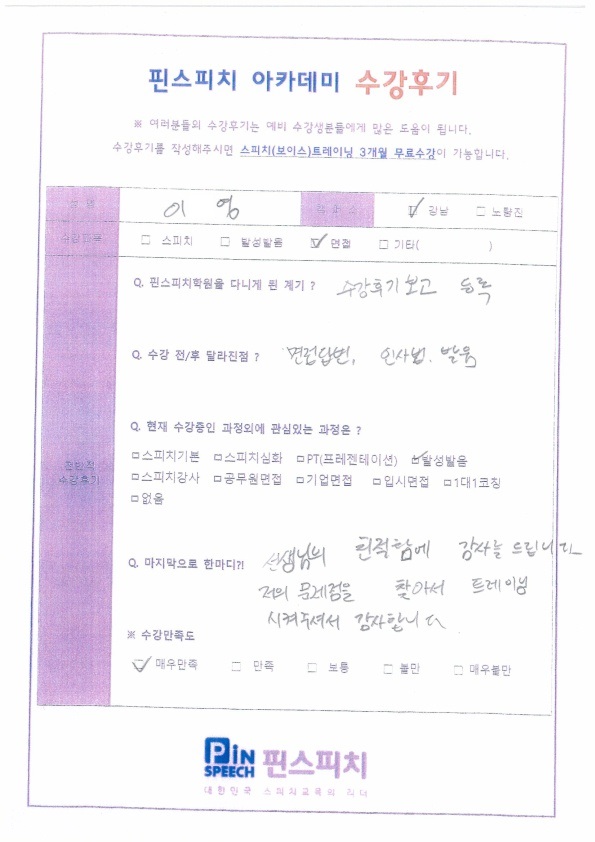 핀스피치 아카데미 수강후기
※ 여러분들의 수강후기는 예비 수강생분들에게 많은 도움이 됩니다.
수강후기를 작성해주시면 스피치(보이스)트레이닝 3개월 무료수강이 가능합니다.
성 명 이 영 캠 퍼 스 ☑ 강남 □ 노량진
수강과목 □ 스피치 □ 발성발음 ☑ 면접 □ 기타( )
Q. 핀스피치학원을 다니게 된 계기 ? 수강후기 보고 등록
Q. 수강 전/후 달라진점 ? 면접답변, 인사법. 발음
Q. 현재 수강중인 과정외에 관심있는 과정은 ?
□스피치기본 □스피치심화 □PT(프레젠테이션) ☑발성발음
전반적
수강후기
□스피치강사 □공무원면접 □기업면접 □입시면접 □1대1코칭
□없음
Q. 마지막으로 한마디?! 선생님의 헌적함에 감사를 드립니다
저의 문제점을 찾아서 트레이닝
시켜주셔서 감사합니다
※ 수강만족도
☑ 매우만족 □ 만족 □ 보통 □ 불만 □ 매우불만
PiN SPEECH 핀스피치
대한민국 스피치교육의 리더